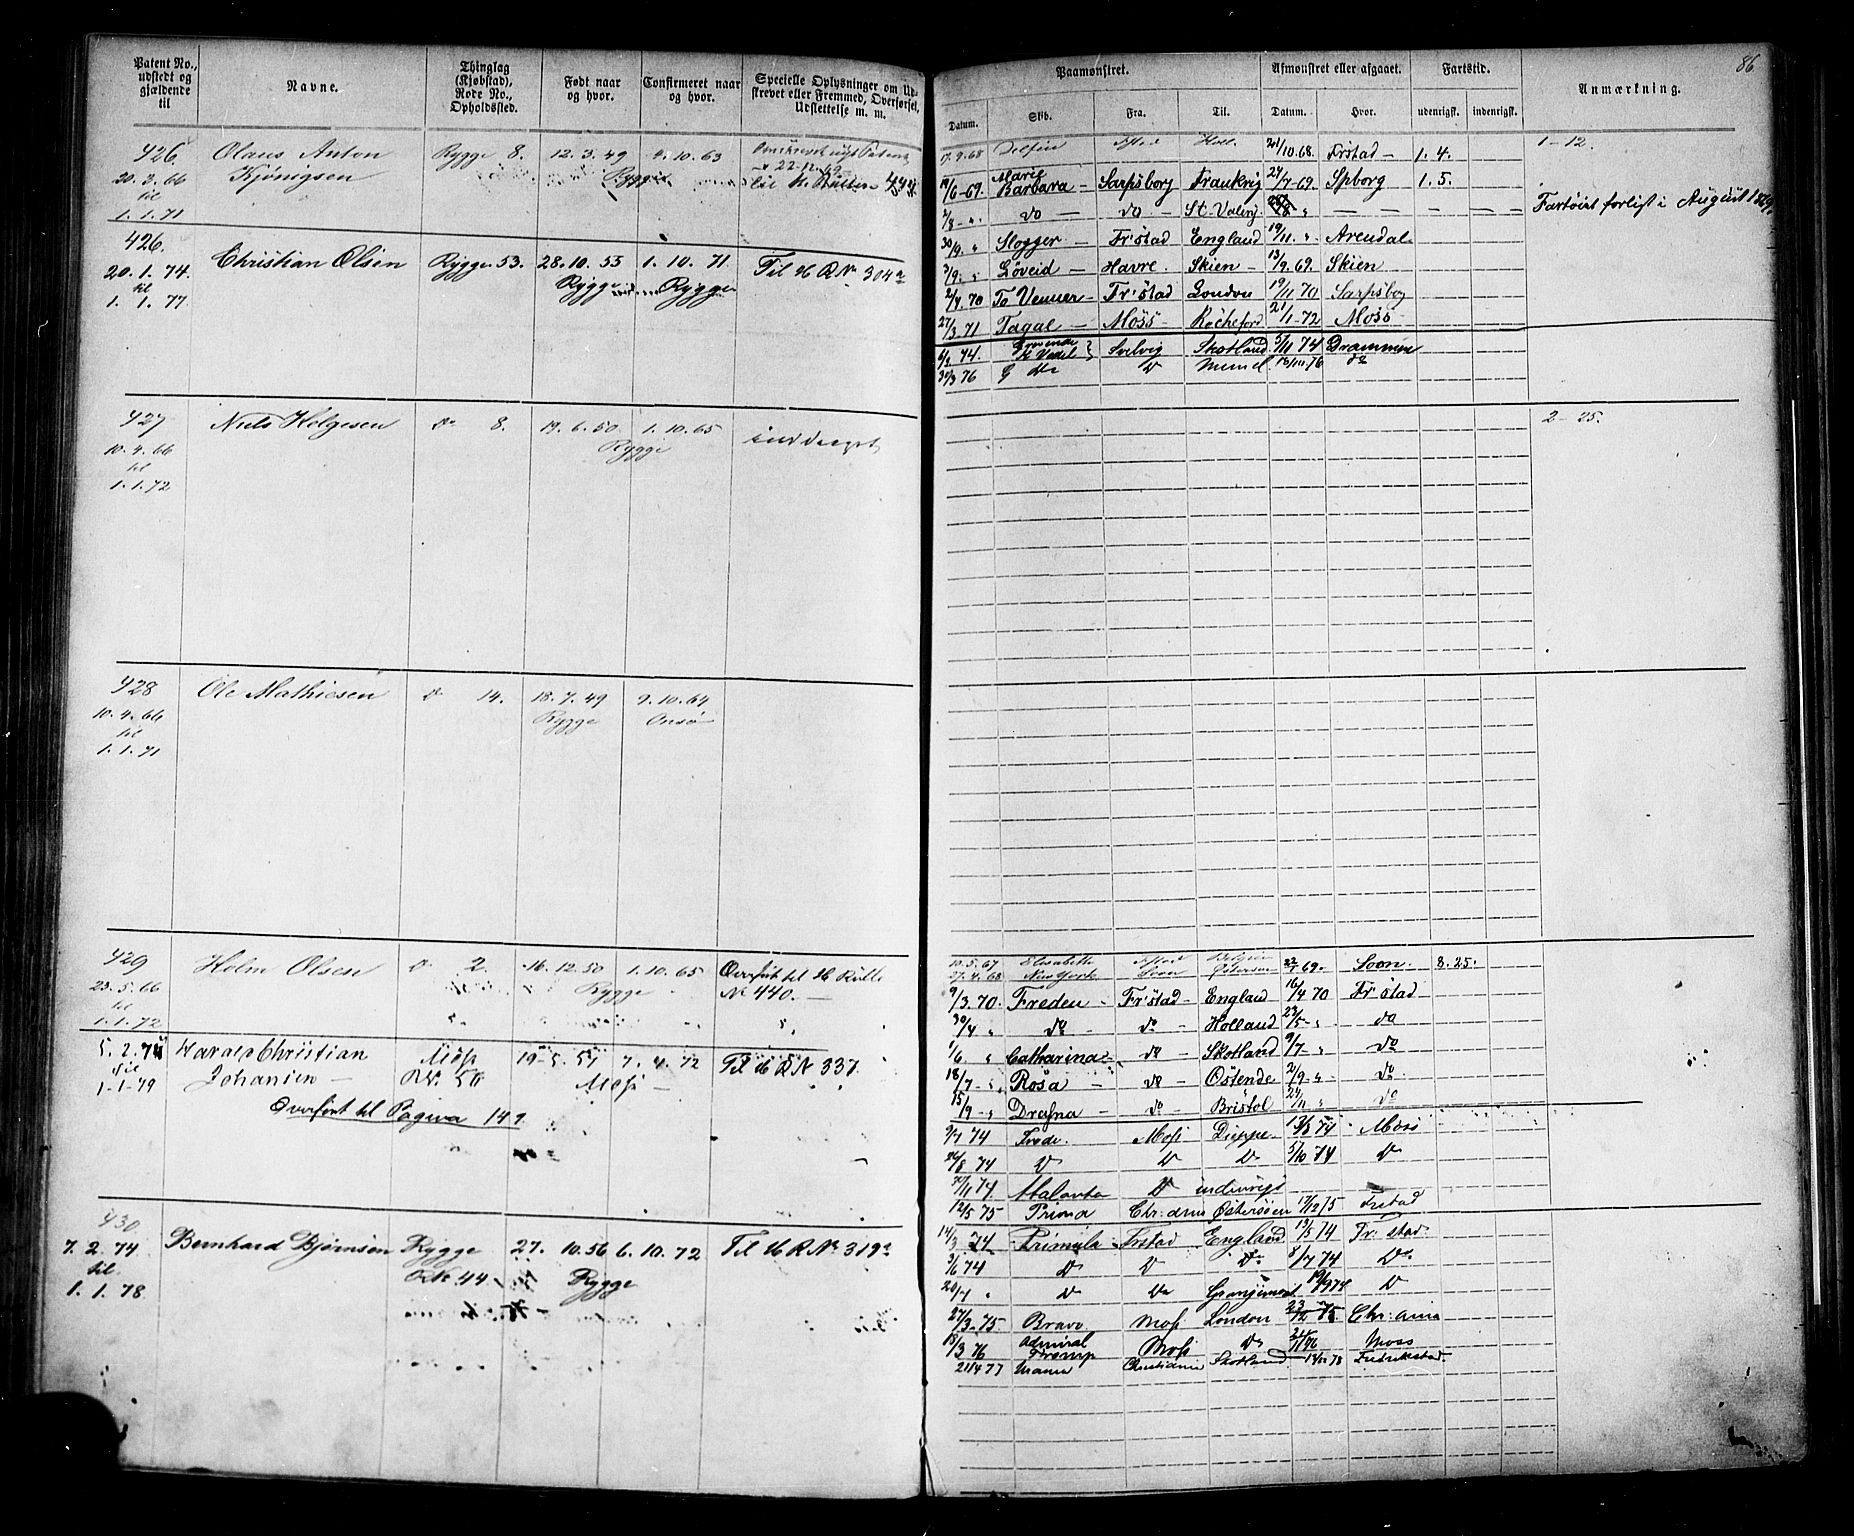 86
Patent No., udstedt og gjældende til
Navne.
Thinglag (Kjøbstad), Rode No., Opholdssted.
Født naar og hvor.
Confirmeret naar og hvor.
Specielle Oplysninger om Udskrevet eller Fremmed, Overførsel, Udslettelse m. m.
Paamønstret.
Afmønstret eller afgaaet.
Fartstid.
Anmærkning.
Datum. Skib. Fra. Til. Datum. Hvor. udenrigsk. indenrigsk.
426 Olaus Anton Rygge 8. 12.3.49 4.10.63
20.3.66 Kjønigsen Rygge
til
1.1.71
426. Christian Olsen Rygge 53. 28.10.53 1.10.71 Til H R No 304a
20.1.74 Rygge Rygge
til
1.1.77
427 Niels Helgesen Do 8. 19.6.50 1.10.65 inddraget
10.4.66 Rygge
til
1.1.72
428 Ole Mathiesen Do 14. 18.7.49 9.10.64
10.4.66 Rygge Onsø
til
1.1.71
429 Holm Olsen Do 2. 16.12.50 1.10.65 Overført til H Rulle
23.5.66 Rygge No 440.
til
1.1.72
5.2.74 Christian Moss 19-5.57 7.4.72 Til H R No 337
til Johansen R No 50 Moss
1-1-79
Overført til Pagina 149
430 Bernhard Bjørnsen Rygge 27.10.56 6.10.72 Til H R No 319a
7.2.74 R No 44 Rygge
til
1.1.78
17.9.68 Delfin Fstad Hull 21/10.68. Frstad 1.4. 1-12.
19/6-69. Marie Barbara Sarpsborg Frankrig 24/7-69. Spborg 1.5.
2/8 - do - do - St. Valery Fartøiet forligt i August
30/9. Slogger Fr:stad England 19/11. Arendal
3/9. Løveid Havre. Skien 13/9.69. Skien
2/4.70 To Venner Fr:stad London 19/11 70 Sarpsborg
27/3 71 Tagal Moss Rocheford 21/1-72 Moss
6/4.74. Svelvig Skotland 5/11 74 Drammen
30/3 76 Do Do Memel Do
2-25.
10.5.67 Elisabeth Fstad
27.4.68 New York Soon 22/7 69. Soon. 8.25.
9/3.70. Freden Fr:stad England 16/4 70 Fr:stad
30/4 do do Holland 23/5 do
1/6. Catharina do Skotland 9/7 do
18/7 Rosa do Ostende 21/9 do
15/9 Drafna do Bristol 24/11 do
9/7 74 Frede. Moss Dieppe 13/8 74 Moss
26/8 74 Do Do Do 5/10 74 Do
20/11 74 Do indenrigs
12/5 75 Prima Chr:ania Østersøen 17/12 75 Frstad
14/3 74 Primula Frstad England 13/5 74 Fr:stad
3/6 74 Do Do Do 8/7 74 Do
20/7 Do Do 19/9 74 Do
27/3-75 Bravo Moss London 75 Chr:ania
18/3 76 Admiral Tromp Moss Do 76 Moss
21/4 77 Christiania Skotland 78 Fredrikstad